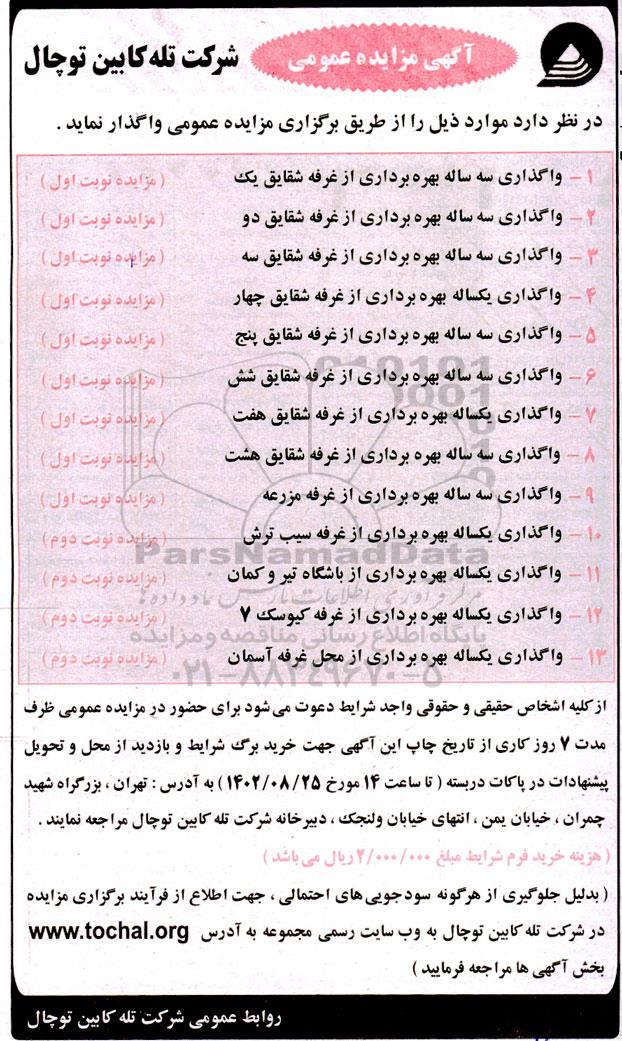 آگهی مزایده عمومی
شرکت تله کابین توچال
در نظر دارد موارد ذیل را از طریق برگزاری مزایده عمومی واگذار نماید .
۱ – واگذاری سه ساله بهره برداری از غرفه شقایق یک ( مزایده نوبت اول )
۲ – واگذاری سه ساله بهره برداری از غرفه شقایق دو ( مزایده نوبت اول )
۳ – واگذاری سه ساله بهره برداری از غرفه شقایق سه ( مزایده نوبت اول )
۴ – واگذاری یکساله بهره برداری از غرفه شقایق چهار ( مزایده نوبت اول )
۵ – واگذاری سه ساله بهره برداری از غرفه شقایق پنج ( مزایده نوبت اول )
۶ – واگذاری سه ساله بهره برداری از غرفه شقایق شش ( مزایده نوبت اول )
۷ – واگذاری یکساله بهره برداری از غرفه شقایق هفت ( مزایده نوبت اول )
۸ – واگذاری سه ساله بهره برداری از غرفه شقایق هشت ( مزایده نوبت اول )
۹ – واگذاری سه ساله بهره برداری از غرفه مزرعه ( مزایده نوبت اول )
۱۰ – واگذاری یکساله بهره برداری از غرفه سیب ترش ( مزایده نوبت دوم )
ParsNamadData
۱۱ – واگذاری یکساله بهره برداری از باشگاه تیر و کمان ( مزایده نوبت دوم )
۱۲ – واگذاری یکساله بهره برداری از غرفه کیوسک ۷ ( مزایده نوبت دوم )
پایگاه اطلاع رسانی مناقصه و مزایده
۱۳ – واگذاری یکساله بهره برداری از محل غرفه آسمان ( مزایده نوبت دوم )
۰۲۱-۸۸۳۴۹۶۷۰-۵
از کلیه اشخاص حقیقی و حقوقی واجد شرایط دعوت می شود برای حضور در مزایده عمومی ظرف
مدت ۷ روز کاری از تاریخ چاپ این آگهی جهت خرید برگ شرایط و بازدید از محل و تحویل
پیشنهادات در پاکات دربسته ( تا ساعت ۱۴ مورخ ۱۴۰۲/۰۸/۲۵ ) به آدرس : تهران ، بزرگراه شهید
چمران ، خیابان یمن ، انتهای خیابان ولنجک ، دبیرخانه شرکت تله کابین توچال مراجعه نمایند .
( هزینه خرید فرم شرایط مبلغ ۲/۰۰۰/۰۰۰ ریال می باشد )
( بدلیل جلوگیری از هرگونه سودجویی های احتمالی ، جهت اطلاع از فرآیند برگزاری مزایده
در شرکت تله کابین توچال به وب سایت رسمی مجموعه به آدرس www.tochal.org
بخش آگهی ها مراجعه فرمایید )
روابط عمومی شرکت تله کابین توچال